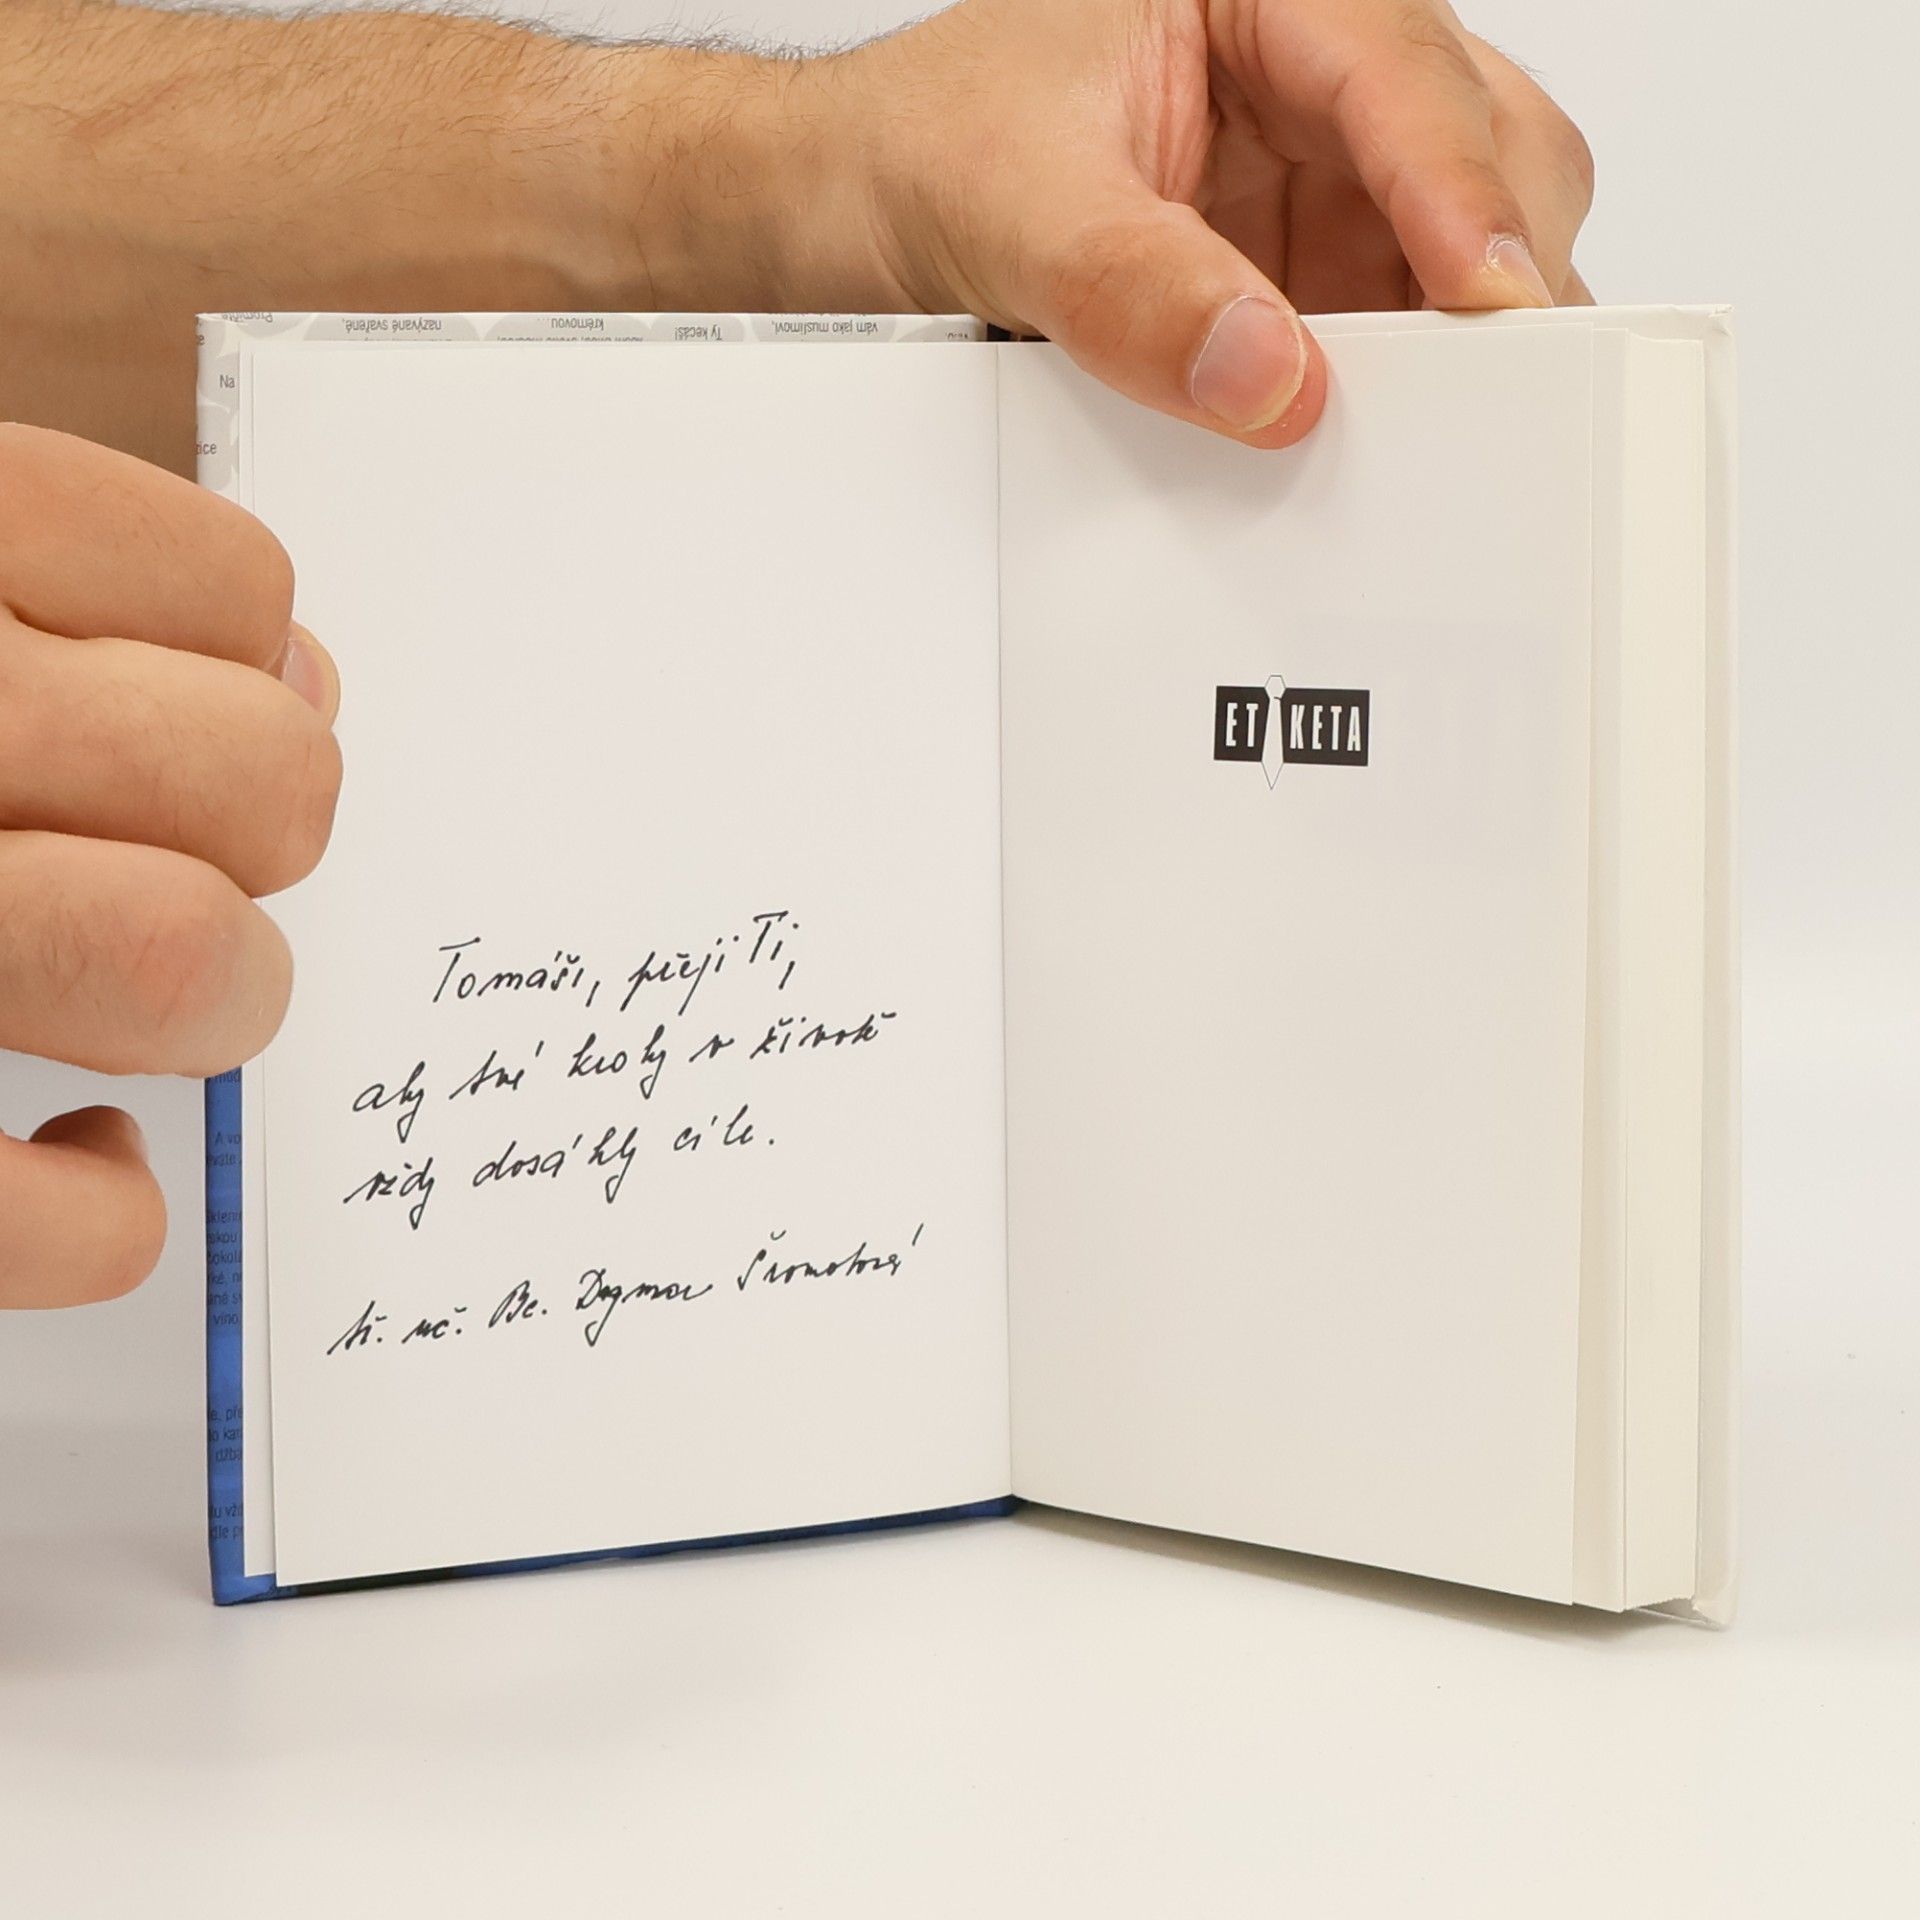 Promiňte
nazývané svařené,
krémovou...
Ty kecáš!
vám jako muslimovi,
Na
Tomáši, přeji Ti,
aby tvé kroky v životě
vždy dosáhly cíle.
tř. uč. Bc. Dagmar Šromotová
ETIKETA
A vo
víno